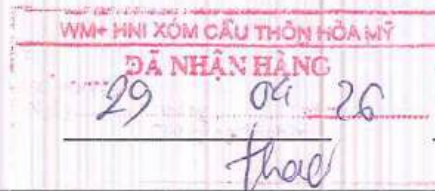 WM+ HNI XÓM CẦU THÔN HÒA MỸ
ĐÃ NHẬN HÀNG
29 09 26
Thao